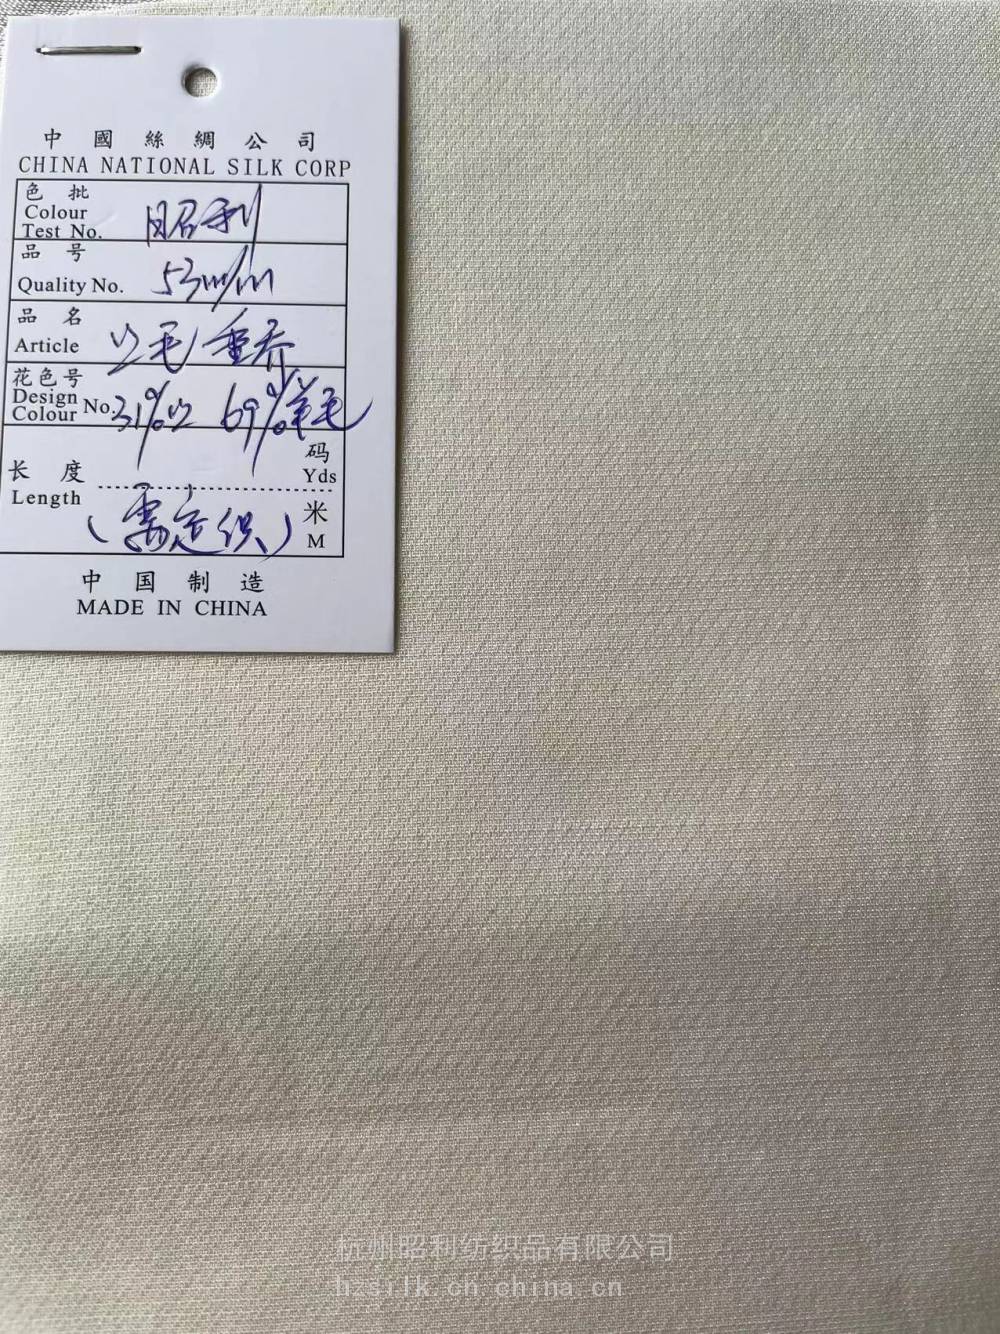 中國絲綢公司
CHINA NATIONAL SILK CORP
色批
Colour
Test No.
昭利
品号
Quality No.
53m/m
品名
Article
丝毛重乔
花色号
Design
Colour No.
31%丝 69%羊毛
长度
Length
码
Yds
(需定织)
米
M
中国制造
MADE IN CHINA
杭州昭利纺织品有限公司
hzsilk.cn.china.cn